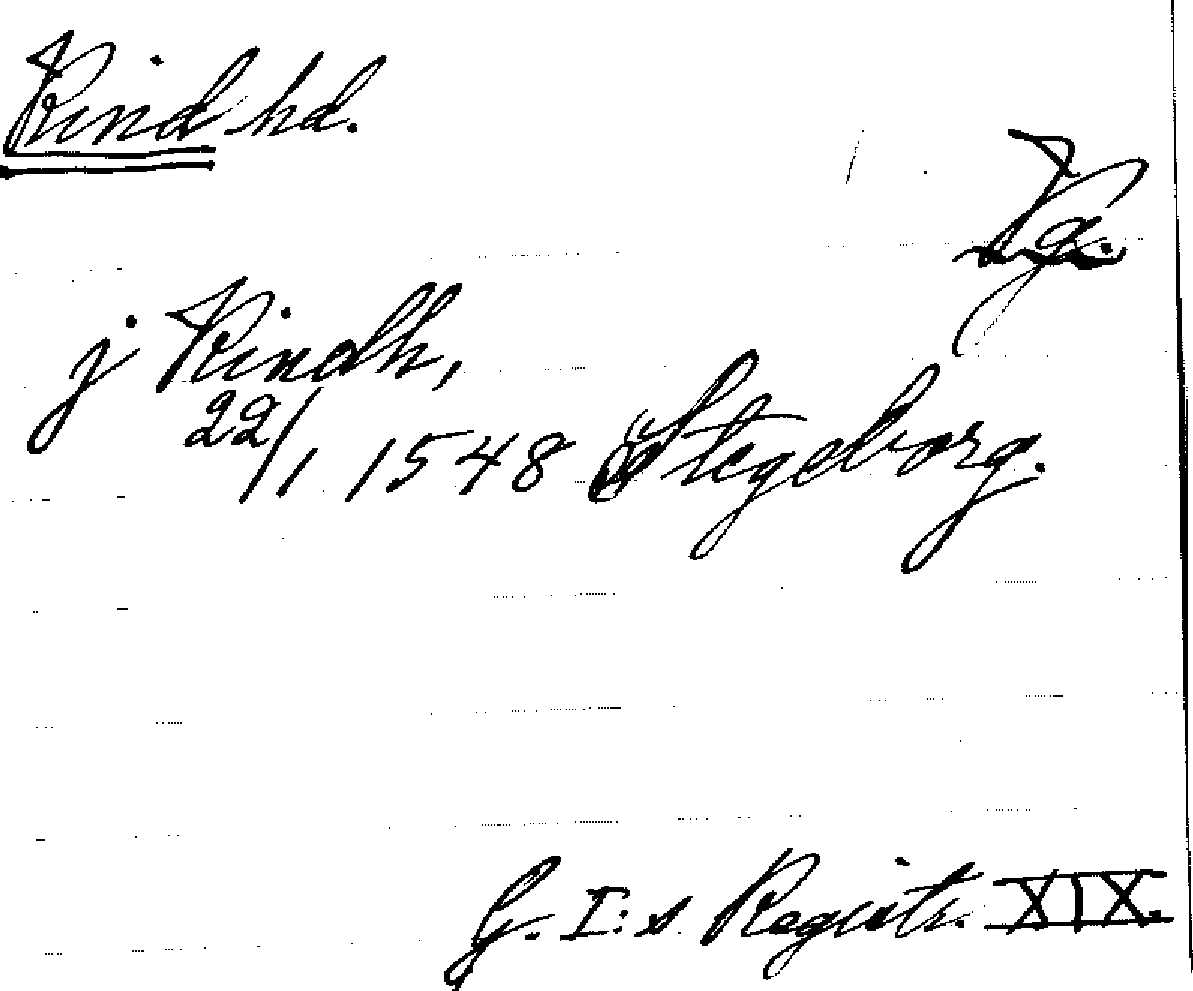 Kind hd.
Vg.
j Kindh,
22/1 1548 Stegeborg.
G. I:s Registr. XIX.